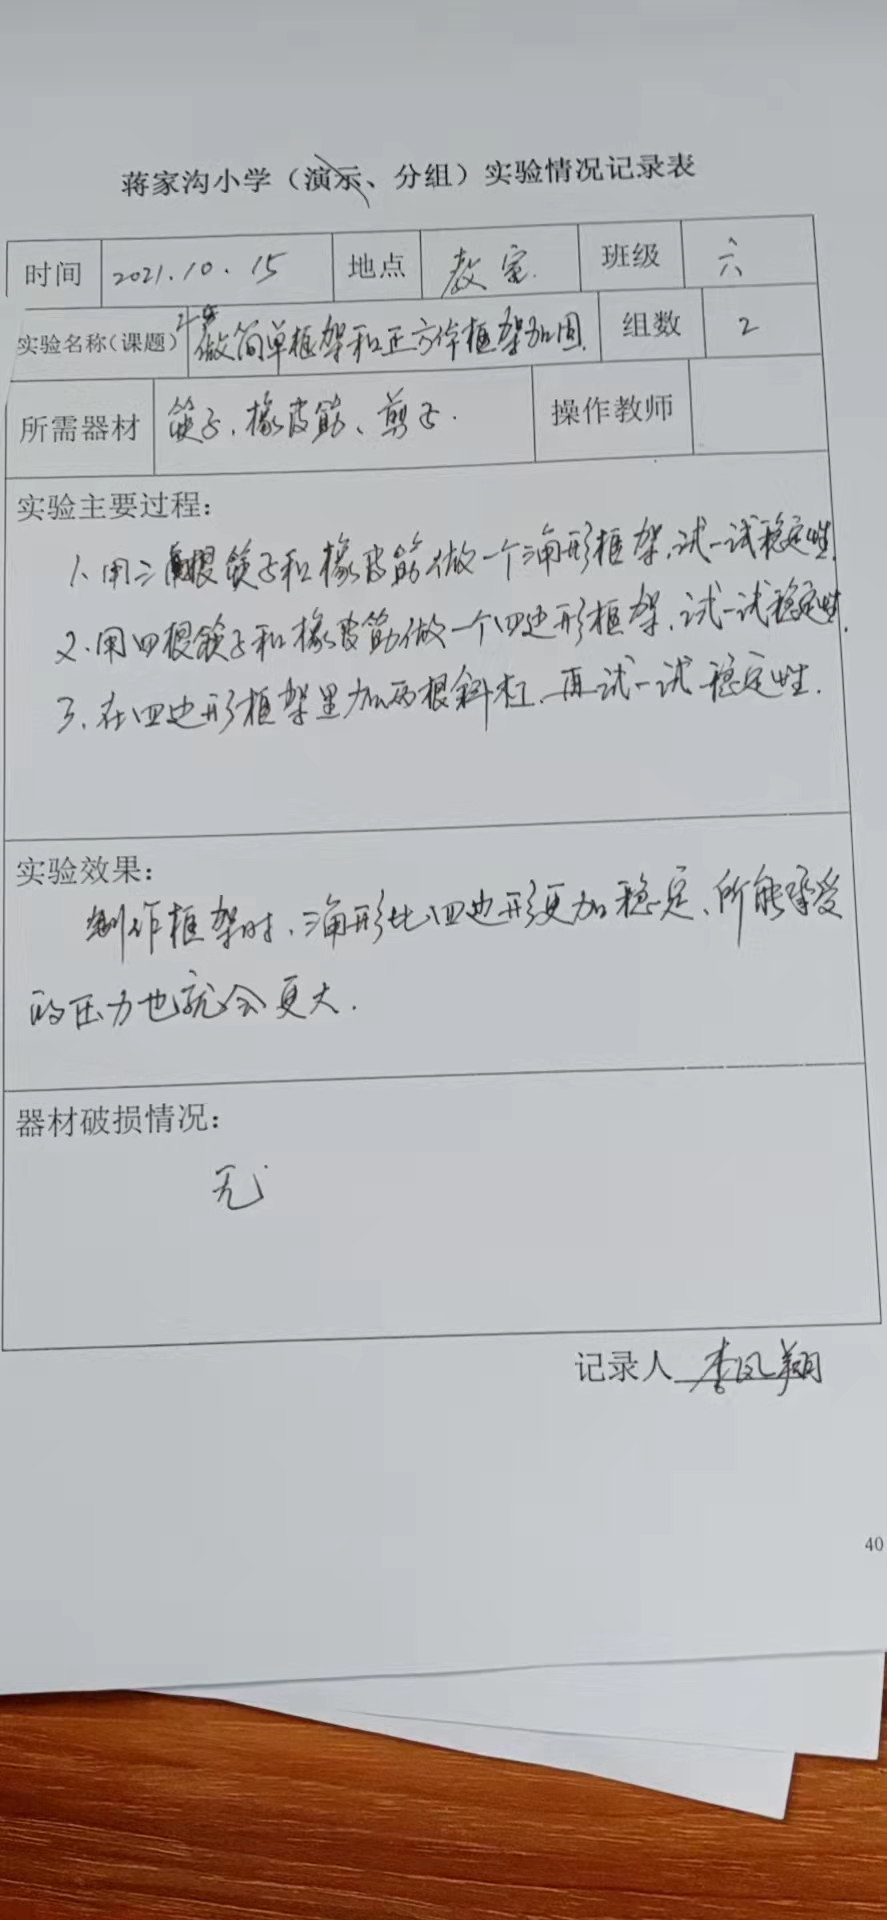 蒋家沟小学（演示、分组）实验情况记录表
时间 2021.10.15 地点 教室. 班级 六
实验名称（课题） 做简单框架和正方体框架加固. 组数 2
所需器材 筷子、橡皮筋、剪子. 操作教师
实验主要过程：
1、用三根筷子和橡皮筋做一个三角形框架,试一试稳定性.
2、用四根筷子和橡皮筋做一个四边形框架,试一试稳定性.
3、在四边形框架里加两根斜杠,再试一试稳定性.
实验效果：
制作框架时、三角形比四边形更加稳定、所能承受
的压力也就会更大.
器材破损情况：
无
记录人 李凤翔
40